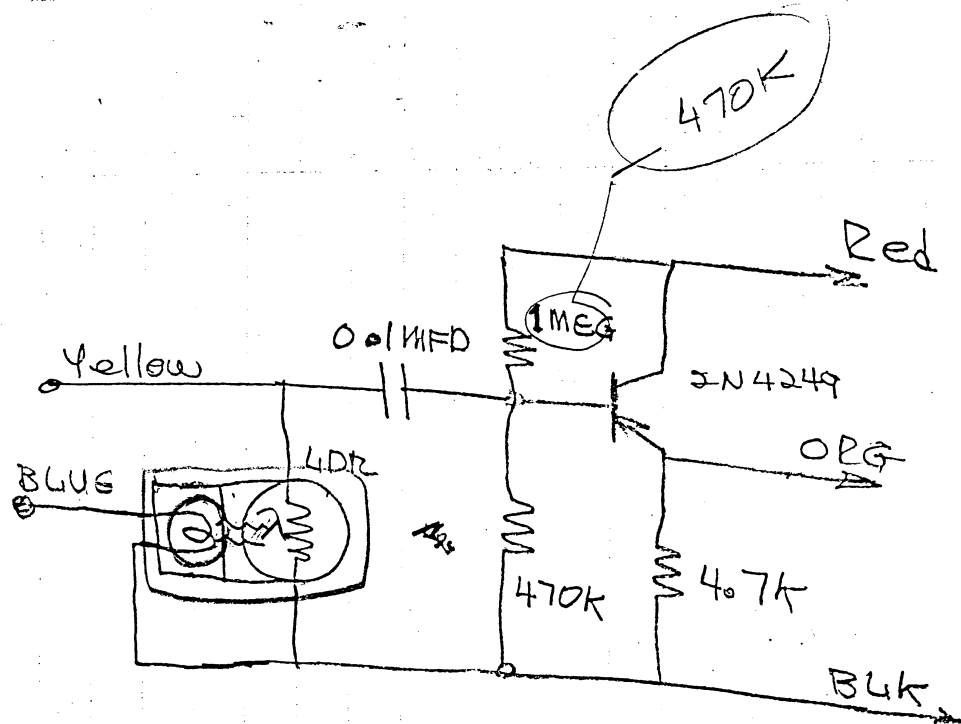 470K
Red
1MEG
0.1MFD
Yellow
2N4249
LDR
ORG
BLUE
470K
4.7K
BLK